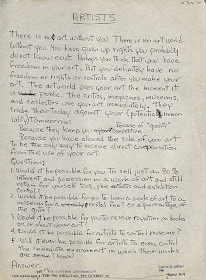 ARTISTS
There is no art without you. There is no art world
without you. You have given up rights you probably
dont know exist. Perhaps you think that you have
freedom in your art. But you definitely have no
freedom or rights or controls after you make your
art. The art world uses your art the moment it
is public. The critics, magazines, museums,
and collectors use your art immediately. They
trade their today against your (potential)
tomorrow.
Because they keep
Because you have allowed the sale of your art
to be the only way to receive direct compensation
from the use of your art.
Question:
1. Would it be possible for you to sell just an 80%
interest and possession in a work of art and still
retain for yourself 20%, plus exhibition and
2. Would it be possible for you to loan a work of art to a
museum for a rental fee? or a percentage of
the gate?
3. Would it be possible for you to receive royalties on books
on or about your art?
4. Would it be possible for artists to control museums?
5. Will it ever be possible for artists to even control
the immediate environment in which their works
are seen?
Answer